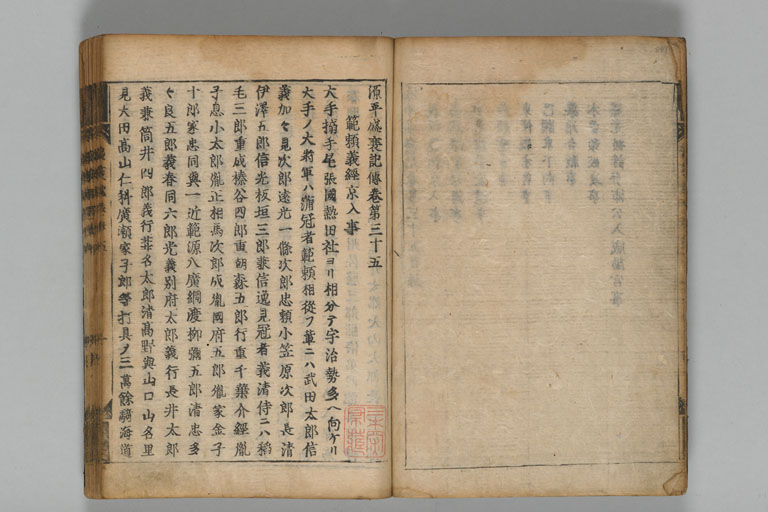 源平盛衰記傳卷第三十五
範頼義經京入事
大手搦手尾張國熱田社ヨリ相分テ宇治勢多ヘ向ケリ
大手ノ大將軍ハ蒲冠者範頼相從フ輩ニハ武田太郎信
義加々見次郎遠光一條次郎忠頼小笠原次郎長清
伊澤五郎信光板垣三郎兼信逸見冠者義清侍ニハ稻
毛三郎重成榛谷四郎重朝森五郎行重千葉介經胤
子息小太郎胤正相馬次郎成胤國府五郎胤家金子
十郎家忠同與一近範源八廣綱渡柳彌五郎清忠多
々良五郎義春同六郎光義別府太郎義行長井太郎
義兼筒井四郎義行葦名太郎清高野與山口山名里
見大田高山仁科廣瀬家子郎等打具メ三萬餘騎海道